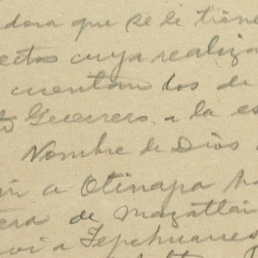 dora que se le tiene
ectos cuya realiza
cuentan dos de
Guerrero a la es
Nombre de Dios
a Otinapa
era de Mazatlan
a Tepehuanes